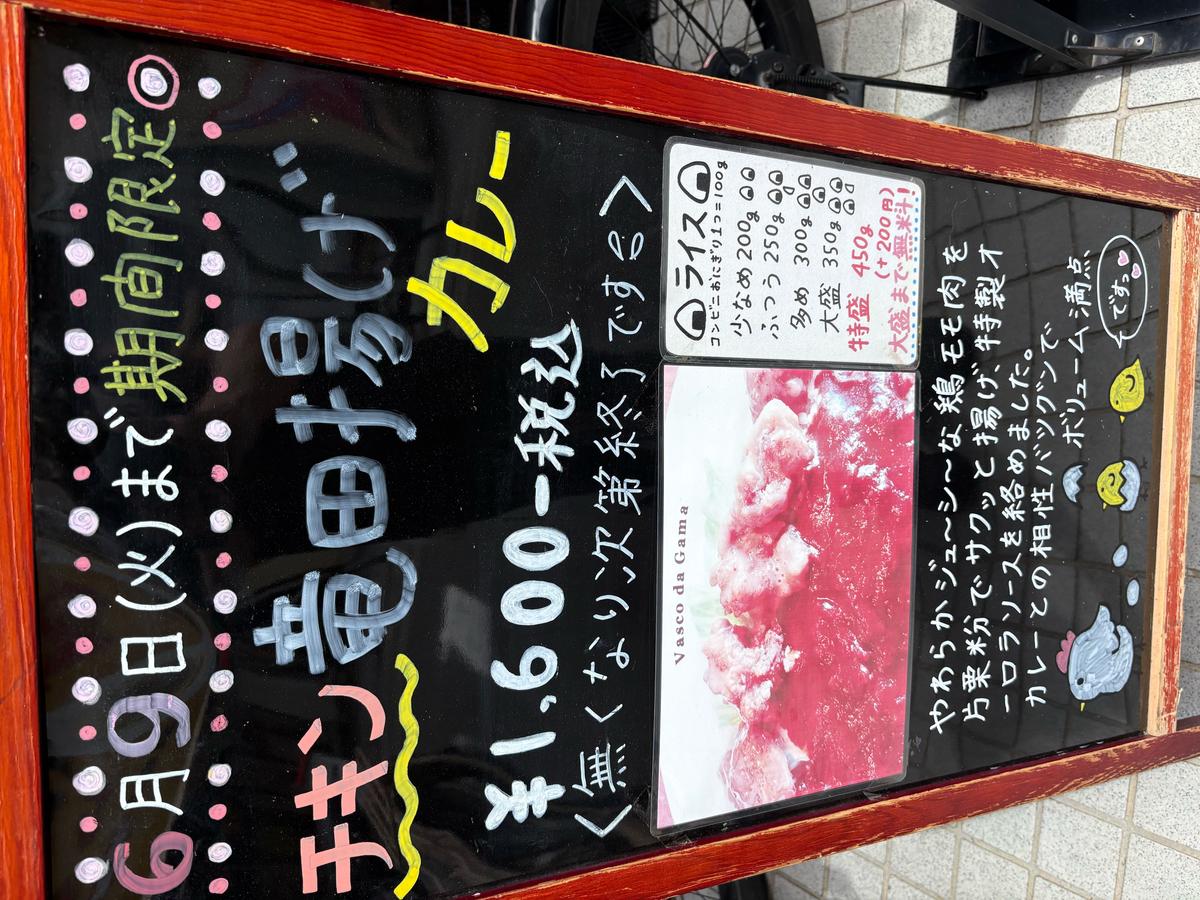 6月9日(火)まで期間限定
チキン竜田揚げ
カレー
¥1,600-税込
<無くなり次第終了です>
Vasco da Gama
ライス
コンビニおにぎり1つ=100g
少なめ 200g
ふつう 250g
多め 300g
大盛 350g
特盛 450g
(+200円)
大盛まで無料!
やわらかジュ〜シ〜な鶏モモ肉を
片栗粉でサクッと揚げ、特製オ
ーロラソースを絡めました。
カレーとの相性バツグンで
ボリューム満点、
ですっ